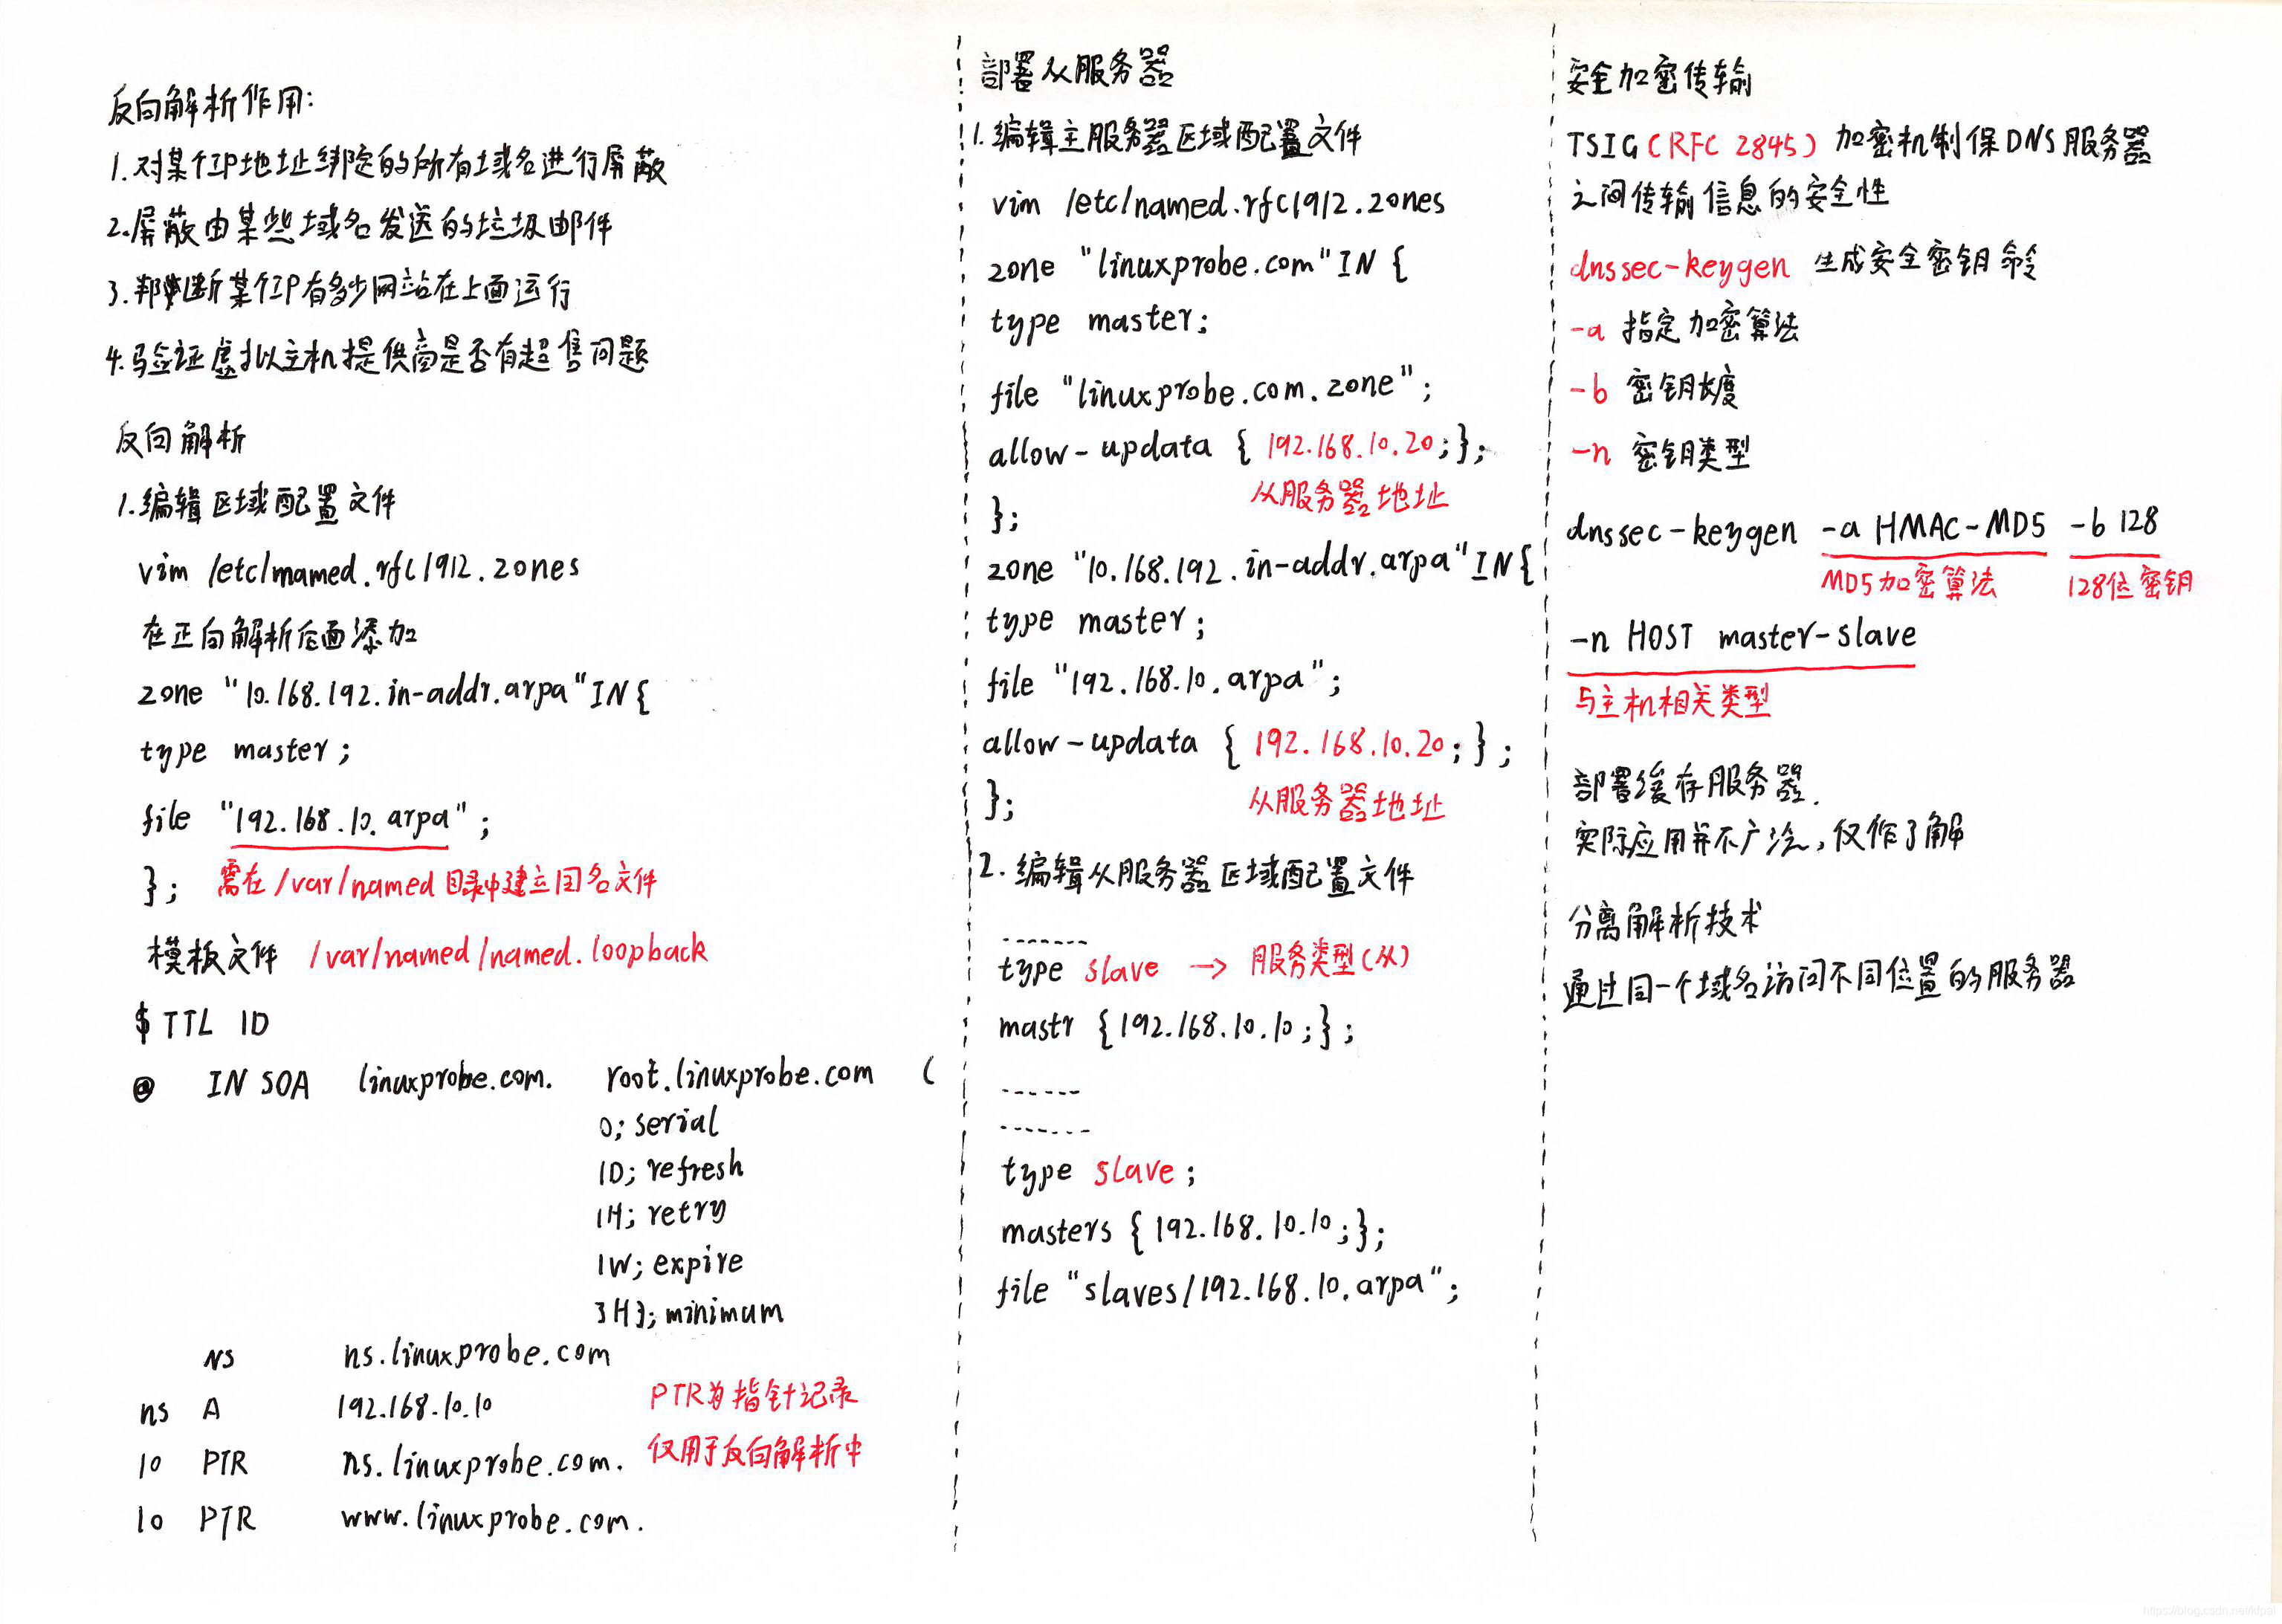 反向解析作用:
1.对某个IP地址绑定的所有域名进行屏蔽
2.屏蔽由某些域名发送的垃圾邮件
3.判断某个IP有多少网站在上面运行
4.验证虚拟主机提供商是否有超售问题
反向解析
1.编辑区域配置文件
vim /etc/named.rfc1912.zones
在正向解析后面添加
zone "10.168.192.in-addr.arpa"IN{
type master;
file "192.168.10.arpa";
}; 需在/var/named目录中建立同名文件
模板文件 /var/named/named.loopback
$TTL 1D
@ IN SOA linuxprobe.com. root.linuxprobe.com (
0; serial
1D; refresh
1H; retry
1W; expire
3H); minimum
NS ns.linuxprobe.com
ns A 192.168.10.10 PTR为指针记录
10 PTR ns.linuxprobe.com. 仅用于反向解析中
10 PTR www.linuxprobe.com.
部署从服务器
1.编辑主服务器区域配置文件
vim /etc/named.rfc1912.zones
zone "linuxprobe.com"IN {
type master;
file "linuxprobe.com.zone";
allow-updata { 192.168.10.20;};
从服务器地址
};
zone "10.168.192.in-addr.arpa"IN{
type master;
file "192.168.10.arpa";
allow-updata { 192.168.10.20;};
从服务器地址
};
2.编辑从服务器区域配置文件
.......
type slave → 服务类型(从)
mastr {192.168.10.10;};
......
.......
type slave;
masters {192.168.10.10;};
file "slaves/192.168.10.arpa";
安全加密传输
TSIG(RFC 2845) 加密机制保DNS服务器
之间传输信息的安全性
dnssec-keygen 生成安全密钥命令
-a 指定加密算法
-b 密钥长度
-n 密钥类型
dnssec-keygen -a HMAC-MD5 -b 128
MD5加密算法 128位密钥
-n HOST master-slave
与主机相关类型
部署缓存服务器.
实际应用并不广泛,仅作了解
分离解析技术
通过同一个域名访问不同位置的服务器
https://blog.csdn.net/kfpsl